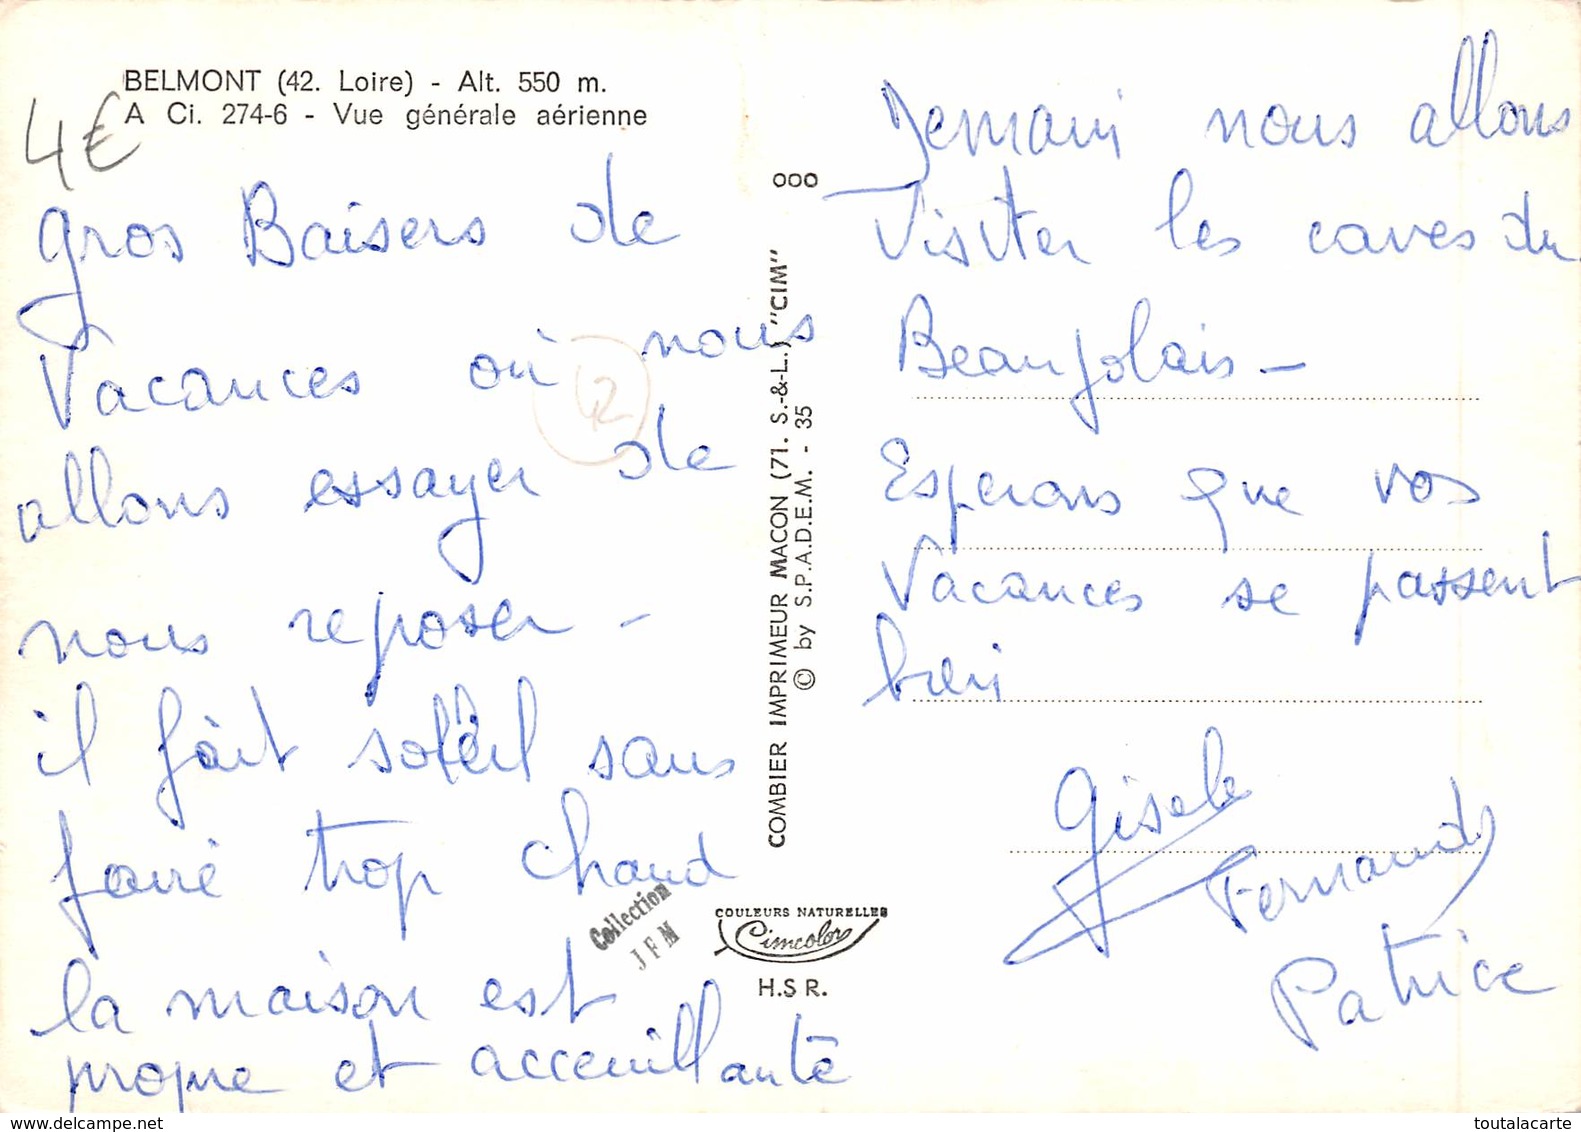 BELMONT (42. Loire) - Alt. 550 m.
A Ci. 274-6 - Vue générale aérienne
4€
gros Baisers de
Vacances où nous
allons essayer de
nous reposer -
il fait soleil sans
faire trop chaud
la maison est
propre et acceuillante
42
Collection
JFM
OOO
COMBIER IMPRIMEUR MACON (71. S.-&-L.) "CIM"
© by S.P.A.D.E.M. - 35
COULEURS NATURELLES
Cimcolor
H.S R.
Demain nous allons
Visiter les caves du
Beaujolais -
Esperons que vos
Vacances se passent
bien
Gisele
Fernand
Patrice
toutalacarte